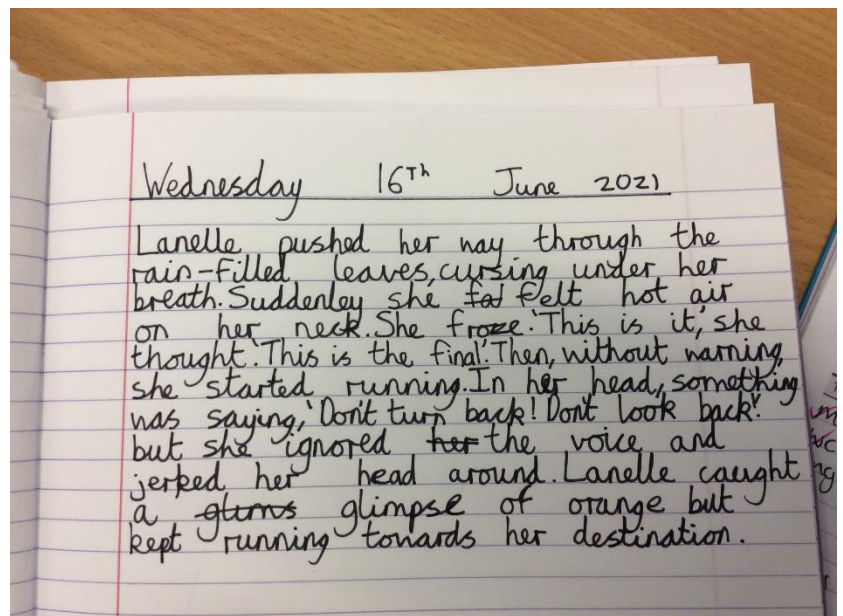 Wednesday 16Th June 2021
Lanelle pushed her way through the
rain-filled leaves, cursing under her
breath. Suddenley she fat felt hot air
on her neck. She froze. 'This is it,' she
thought. 'This is the final'. Then, without warning,
she started running. In her head, something
was saying, 'Don't turn back! Don't look back!'
but she ignored her the voice and
jerked her head around. Lanelle caught
a glims glimpse of orange but
kept running towards her destination.